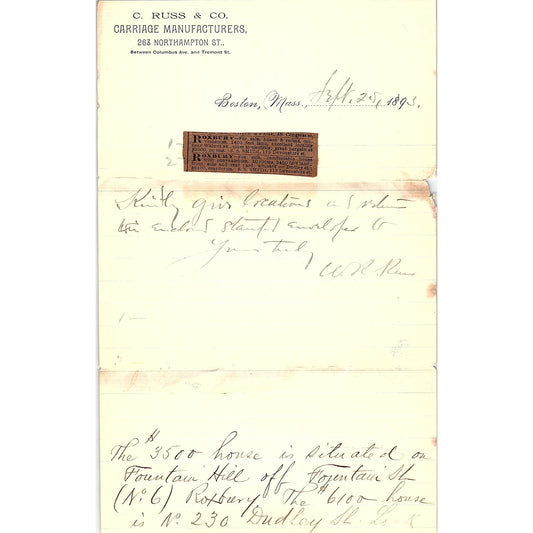 C. RUSS & CO.
CARRIAGE MANUFACTURERS,
263 NORTHAMPTON ST.,
Between Columbus Ave. and Tremont St.
Boston, Mass., Sept. 25, 1893.
1-
2-
ROXBURY
ROXBURY
Kindly give locations and return
in enclosed stamped envelope to
Yours truly
W R Russ
The $3500 house is situated on
Fountain Hill off Fountain St.
(No. 6) Roxbury The $6100 house
is No. 230 Dudley St.